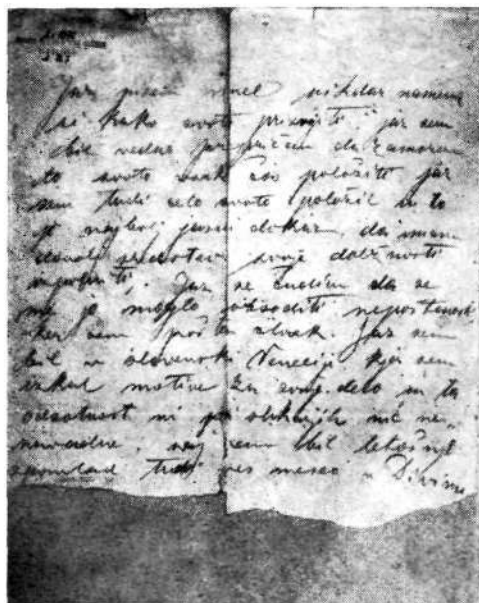 Jaz nisem imel nikdar namena
si kako svoto prisvojiti, jaz sem
bil vedno prepričan da zamorem
to svoto vsak čas položiti jaz
sem tudi celo svoto položil in to
je najbolj jasni dokaz, da imam
dovolj sredstev svoje dolžnosti
Jaz se čudim da se
me je moglo obsoditi nepoštenosti
ker sem pošten človek. Jaz sem
bil v slovenski Veneciji kjer sem
iskal motive za svoje delo in ta
odsotnost ni pri slikarjih nič ne
navadne, saj sem bil letošnjo
spomlad tudi ves mesec v Divini